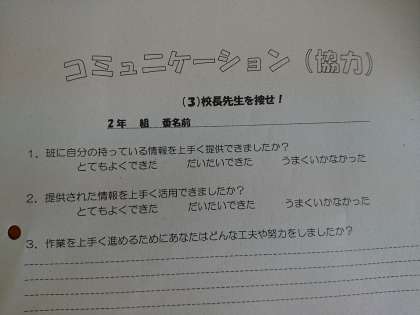 コミュニケーション(協力)
(3)校長先生を捜せ!
2年 組 番名前
1．班に自分の持っている情報を上手く提供できましたか?
とてもよくできた だいたいできた うまくいかなかった
2．提供された情報を上手く活用できましたか?
とてもよくできた だいたいできた うまくいかなかった
3．作業を上手く進めるためにあなたはどんな工夫や努力をしましたか?